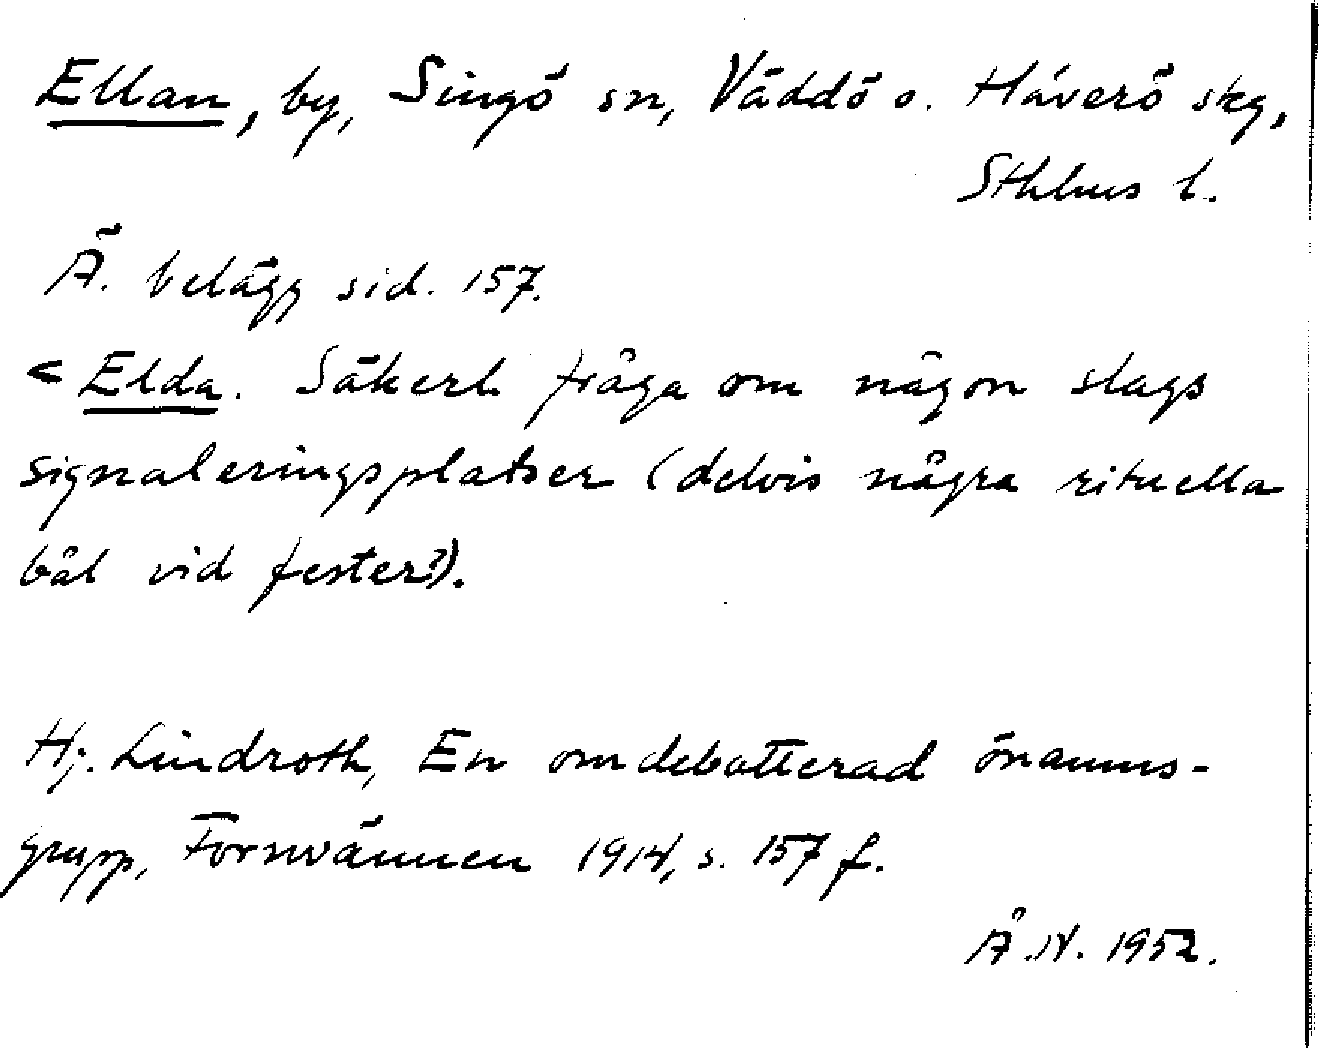 Ellan, by, Singö sn, Väddö o. Häverö skg,
Sthlms l.
Ä. belägg sid. 157.
< Elda. Säkerl. fråga om någon slags
signaleringsplatser (delvis några rituella
bål vid fester?).
Hj. Lindroth, En omdebatterad önamns-
grupp, Fornvännen 1914, s. 157 f.
Å.N. 1952.